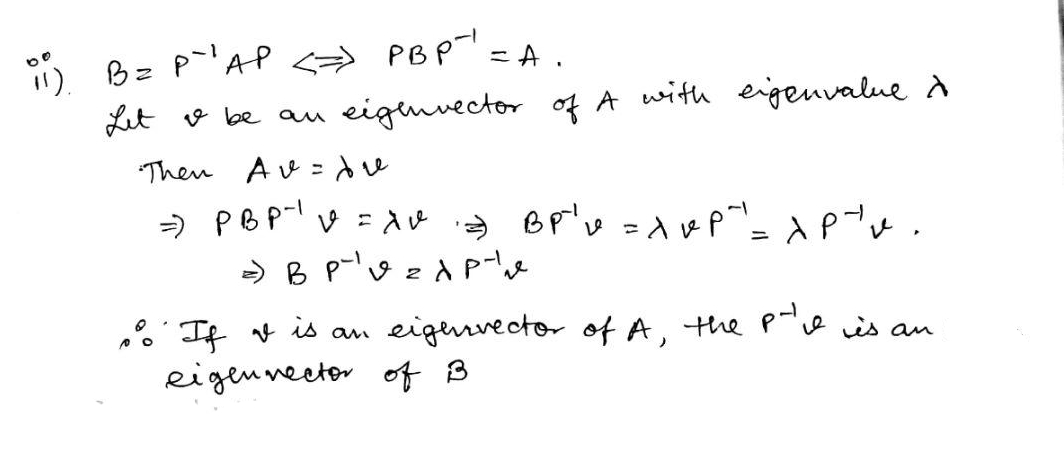 ii). B = P⁻¹AP <=> PBP⁻¹ = A.
Let v be an eigenvector of A with eigenvalue λ
Then Av = λv
⇒ PBP⁻¹v = λv ⇒ BP⁻¹v = λvP⁻¹ = λP⁻¹v.
⇒ BP⁻¹v = λP⁻¹v
∴ If v is an eigenvector of A, the P⁻¹v is an
eigenvector of B